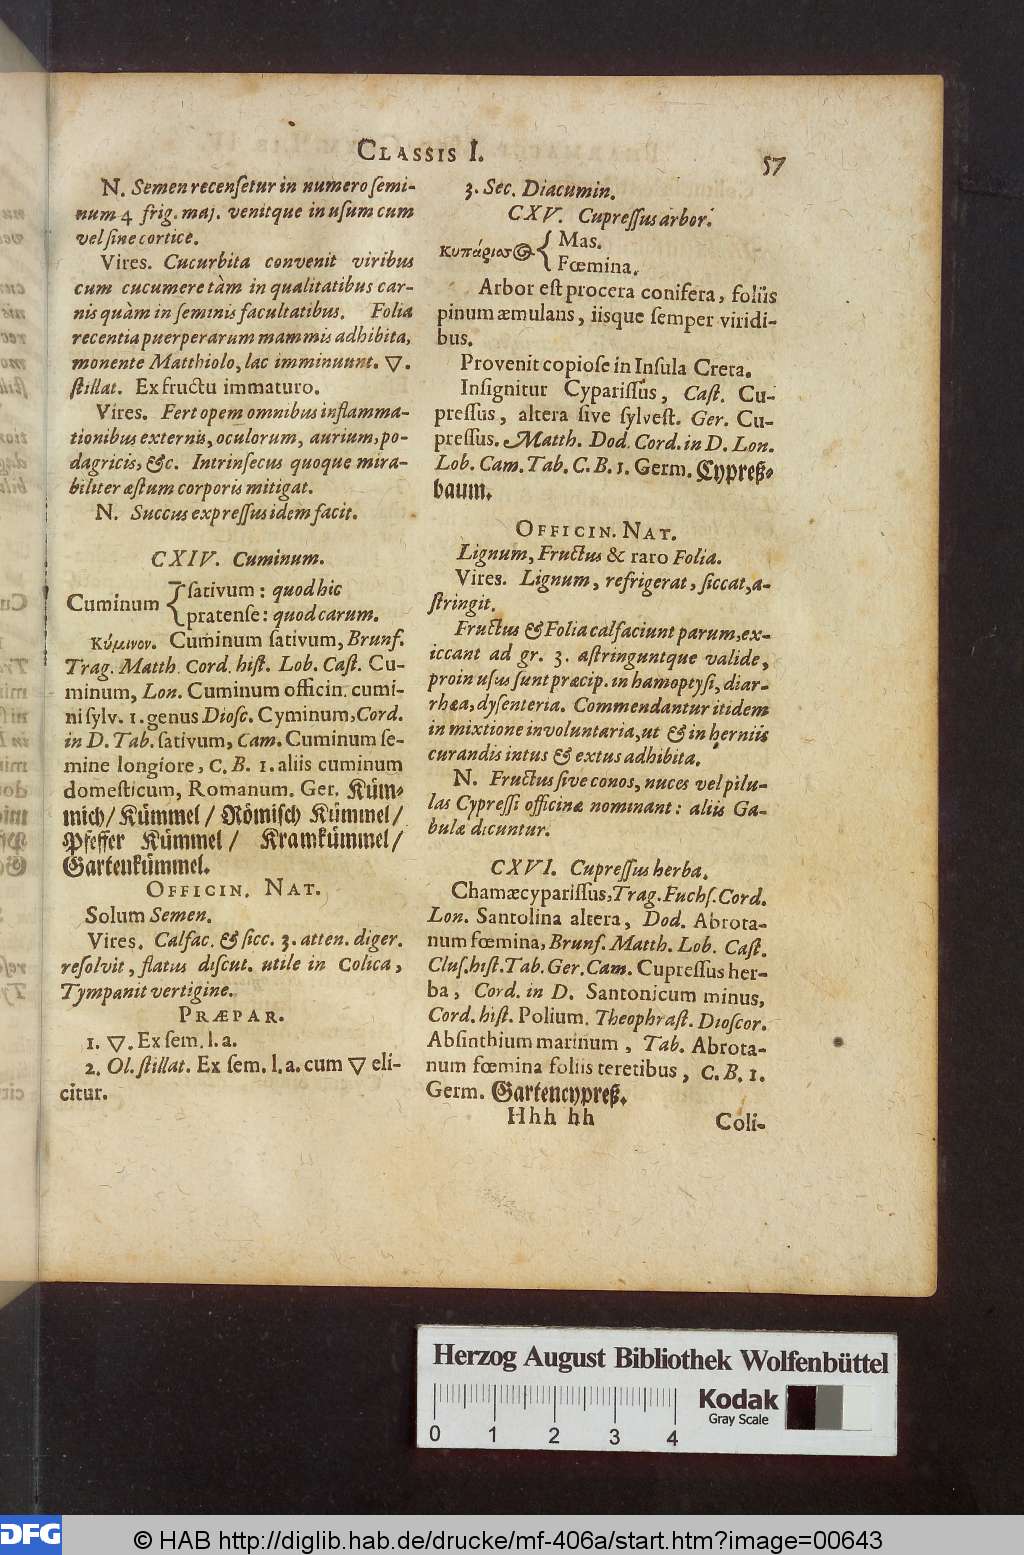 CLASSIS I.
57
N. Semen recensetur in numero semi-
num 4 frig. maj. venitque in usum cum
vel sine cortice.
Vires. Cucurbita convenit viribus
cum cucumere tàm in qualitatibus car-
nis quàm in seminis facultatibus. Folia
recentia puerperarum mammis adhibita,
monente Matthiolo, lac imminuunt. ▽.
stillat. Ex fructu immaturo.
Vires. Fert opem omnibus inflamma-
tionibus externis, oculorum, aurium, po-
dagricis, &c. Intrinsecus quoque mira-
biliter æstum corporis mitigat.
N. Succus expressus idem facit.
CXIV. Cuminum.
Cuminum { sativum: quod hic
pratense: quod carum.
Κύμινον. Cuminum sativum, Brunf.
Trag. Matth. Cord. hist. Lob. Cast. Cu-
minum, Lon. Cuminum officin. cumi-
ni sylv. 1. genus Diosc. Cyminum, Cord.
in D. Tab. sativum, Cam. Cuminum se-
mine longiore, C. B. 1. aliis cuminum
domesticum, Romanum. Ger. Küm-
mich/ Kümmel / Römisch Kümmel /
Pfeffer Kümmel / Kramkümmel /
Gartenkümmel.
OFFICIN. NAT.
Solum Semen.
Vires. Calfac. & sicc. 3. atten. diger.
resolvit, flatus discut. utile in Colica,
Tympanit vertigine.
PRÆPAR.
1. ▽. Ex sem. l. a.
2. Ol. stillat. Ex sem. l. a. cum ▽ eli-
citur.
3. Sec. Diacumin.
CXV. Cupressus arbor.
κυπάρισσος { Mas.
Fœmina.
Arbor est procera conifera, foliis
pinum æmulans, iisque semper viridi-
bus.
Provenit copiose in Insula Creta.
Insignitur Cyparissus, Cast. Cu-
pressus, altera sive sylvest. Ger. Cu-
pressus. Matth. Dod. Cord. in D. Lon.
Lob. Cam. Tab. C. B. 1. Germ. Cypreß-
baum.
OFFICIN. NAT.
Lignum, Fructus & raro Folia.
Vires. Lignum, refrigerat, siccat, a-
stringit.
Fructus & Folia calfaciunt parum, ex-
iccant ad gr. 3. astringuntque valide,
proin usus sunt præcip. in hamoptysi, diar-
rhæa, dysenteria. Commendantur itidem
in mixtione involuntaria, ut & in herniis
curandis intus & extus adhibita.
N. Fructus sive conos, nuces vel pilu-
las Cypressi officinæ nominant: aliis Ga-
bulæ dicuntur.
CXVI. Cupressus herba.
Chamæcyparissus, Trag. Fuchs. Cord.
Lon. Santolina altera, Dod. Abrota-
num fœmina, Brunf. Matth. Lob. Cast.
Clus. hist. Tab. Ger. Cam. Cupressus her-
ba, Cord. in D. Santonicum minus,
Cord. hist. Polium. Theophrast. Dioscor.
Absinthium marinum, Tab. Abrota-
num fœmina foliis teretibus, C. B. 1.
Germ. Gartencypreß.
Hhh hh
Coli-
Herzog August Bibliothek Wolfenbüttel
0 1 2 3 4
Kodak
Gray Scale
DFG
© HAB http://diglib.hab.de/drucke/mf-406a/start.htm?image=00643